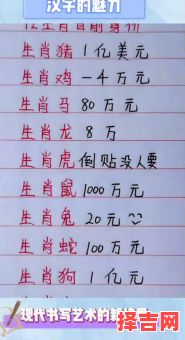 汉字的魅力
12生肖首前身价
生肖猪 1亿美元
生肖鸡 -4万元
生肖马 80万元
生肖龙 8万
生肖虎 倒贴没人要
生肖鼠 1000万元
生肖兔 20元
生肖蛇 100万元
生肖狗 1亿元
现代书写艺术的新
择吉网
zejiwang.com